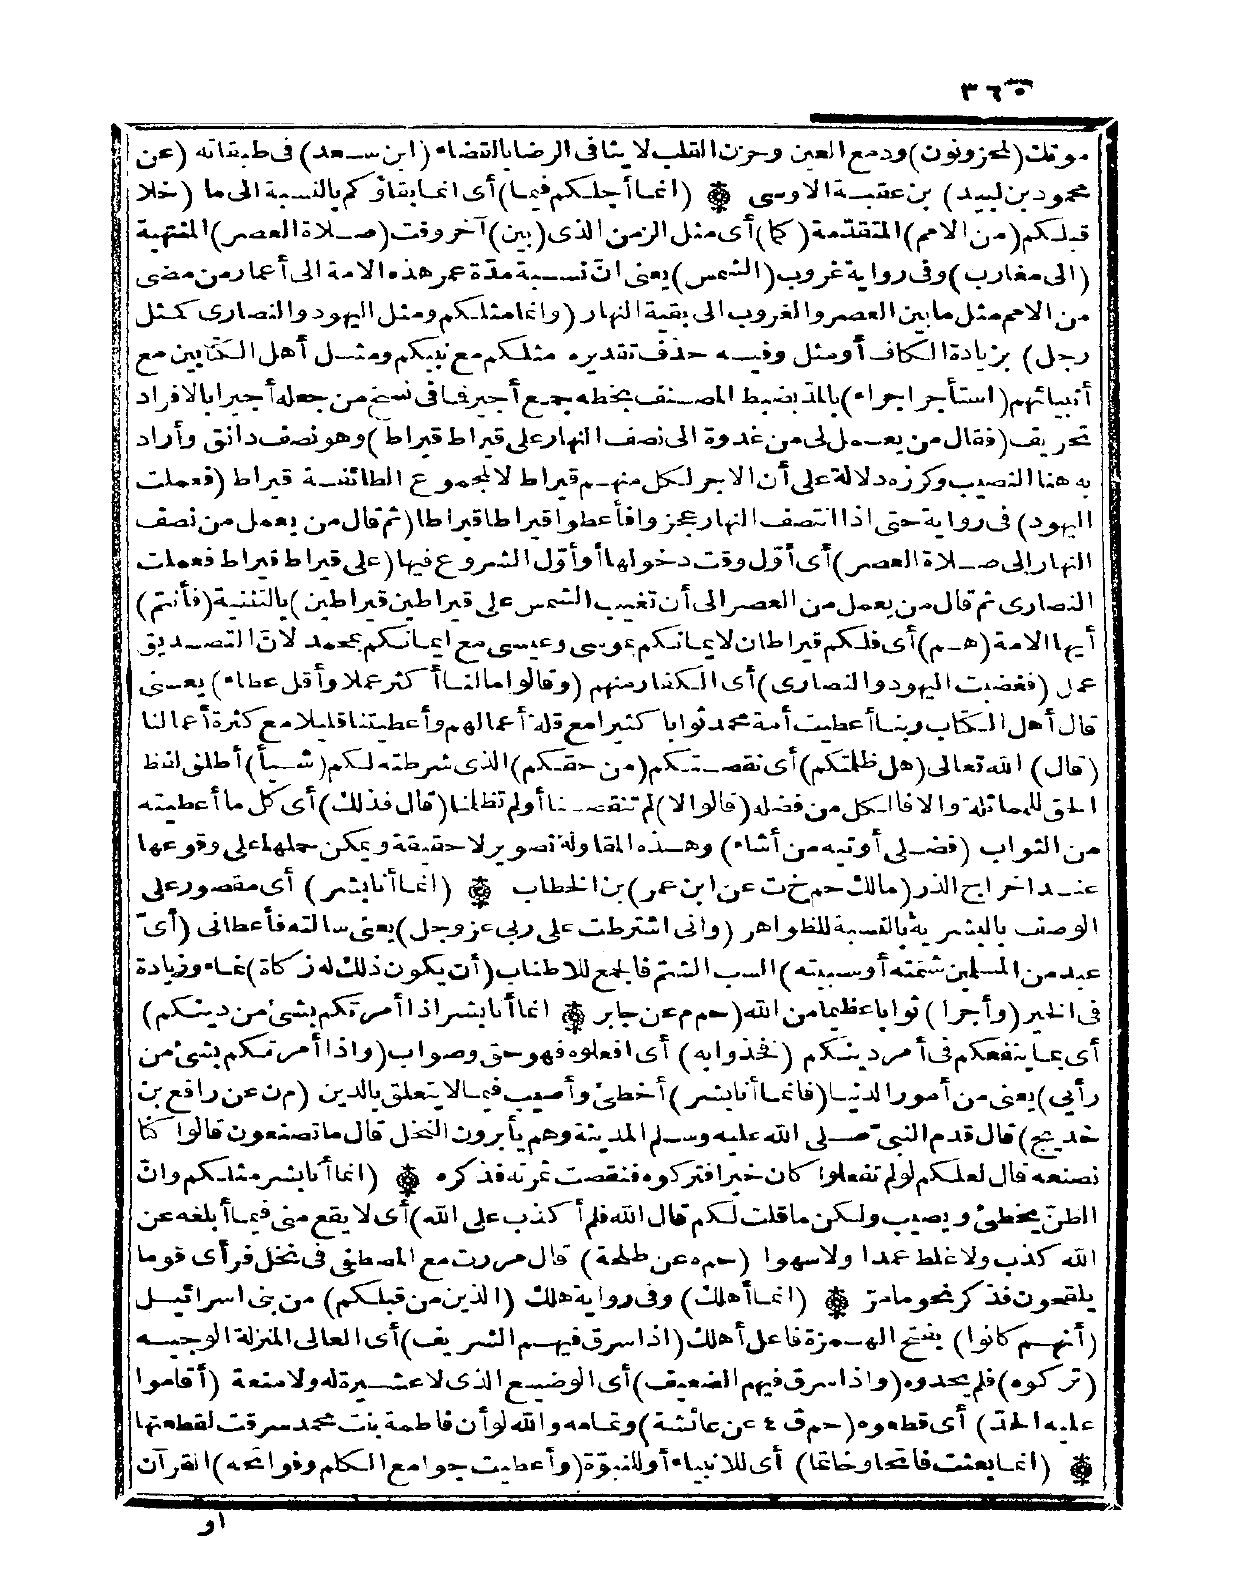 ٣٦٥
موتك (لمحزونون) ودمع العين وحزن القلب لا ينافى الرضا بالقضاء (ابن سعد) فى طبقاته (عن
محمود بن لبيد) بن عقبة الاوسى ۞ (انما أجلكم فيما) أى انما بقاؤكم بالنسبة الى ما (خلا
قبلكم (من الامم) المتقدّمة (كما) أى مثل الزمن الذى (بين) آخر وقت (صلاة العصر) المنتهية
(الى مغارب) وفى رواية غروب (الشمس) يعنى انّ نسبة مدّة عمر هذه الامة الى أعمار من مضى
من الامم مثل ما بين العصر والغروب الى بقية النهار (وانما مثلكم ومثل اليهود والنصارى كمثل
رجل) بزيادة الكاف أومثل وفيه حذف تقديره مثلكم مع نبيكم ومثل أهل الكتابين مع
أنبيائهم (استأجر اجراء) بالمدّ بضبط المصنف بخطه جمع أجير فما فى نسخ من جعله أجيرا بالافراد
تحريف (فقال من يعمل لى من غدوة الى نصف النهار على قيراط قيراط) وهو نصف دانق وأراد
به هنا النصيب وكرّره دلالة على أن الاجر لكل منهم قيراط لا لمجموع الطائفة قيراط (فعملت
اليهود) فى رواية حتى اذا انتصف النهار عجزوا فأعطوا قيراطا قيراطا (ثم قال من يعمل من نصف
النهار إلى صلاة العصر) أى أوّل وقت دخولها أو أوّل الشروع فيها (على قيراط قيراط فعملت
النصارى ثم قال من يعمل من العصر الى أن تغيب الشمس على قيراطين قيراطين) بالتثنية (فأنتم)
أيها الامة (هم) أى فلكم قيراطان لايمانكم بموسى وعيسى مع ايمانكم بمحمد لانّ التصديق
عمل (فغضبت اليهود والنصارى) أى الكفار منهم (وقالوا مالنا أكثر عملا وأقل عطاء) يعنى
قال أهل الكتاب ربنا أعطيت أمة محمد ثوابا كثيرا مع قلة أعمالهم وأعطيتنا قليلا مع كثرة أعمالنا
(قال) الله تعالى (هل ظلمتكم) أى نقصتكم (من حقكم) الذى شرطته لكم (شيأ) أطلق لفظ
الحق للمماثلة والا فالكل من فضله (قالوا لا) لم تنقصنا أو لم تظلمنا (قال فذلك) أى كل ما أعطيته
من الثواب (فضلى أوتيه من أشاء) وهذه المقاولة تصوير لا حقيقة ويمكن حملها على وقوعها
عند اخراج الذر (مالك حم خ ت عن ابن عمر) بن الخطاب ۞ (انما أنا بشر) أى مقصور على
الوصف بالبشرية بالنسبة للظواهر (وانى اشترطت على ربى عز وجل) يعنى سالته فأعطانى (أىّ
عبد من المسلمين شتمته أو سببته) السب الشتم فالجمع للاطناب (أن يكون ذلك له زكاة) نماء وزيادة
فى الخير (وأجرا) ثوابا عظيما من الله (حم م عن جابر ۞ انما أنا بشر اذا أمرتكم بشئ من دينكم)
أى بما ينفعكم فى أمر دينكم (فخذوا به) أى افعلوه فهو حق وصواب (واذا أمرتكم بشئ من
رأيى) يعنى من أمور الدنيا (فانما أنا بشر) أخطئ وأصيب فيما لا يتعلق بالدين (م ن عن رافع بن
خديج) قال قدم النبىّ صلى الله عليه وسلم المدينة وهم يأبرون النخل قال ما تصنعون قالوا كنا
نصنعه قال لعلكم لو لم تفعلوا كان خيرا فتركوه فنقصت ثمرته فذكره ۞ (انما أنا بشر مثلكم وانّ
الظنّ يخطئ ويصيب ولكن ما قلت لكم قال الله فلم أكذب على الله) أى لا يقع منى فيما أبلغه عن
الله كذب ولا غلط عمدا ولا سهوا (حم ه عن طلحة) قال مررت مع المصطفى فى نخل فرأى قوما
يلقحون فذكر نحو ما مرّ ۞ (انما أهلك) وفى رواية هلك (الذين من قبلكم) من بنى اسرائيل
(أنهم كانوا) بفتح الهمزة فاعل أهلك (اذا سرق فيهم الشريف) أى العالى المنزلة الوجيه
(تركوه) فلم يحدوه (واذا سرق فيهم الضعيف) أى الوضيع الذى لا عشيرة له ولا منعة (أقاموا
عليه الحدّ) أى قطعوه (حم ق ٤ عن عائشة) وتمامه والله لو أن فاطمة بنت محمد سرقت لقطعتها
۞ (انما بعثت فاتحا وخاتما) أى للانبياء أو للنبوّة (وأعطيت جوامع الكلم وفواتحه) القرآن
او